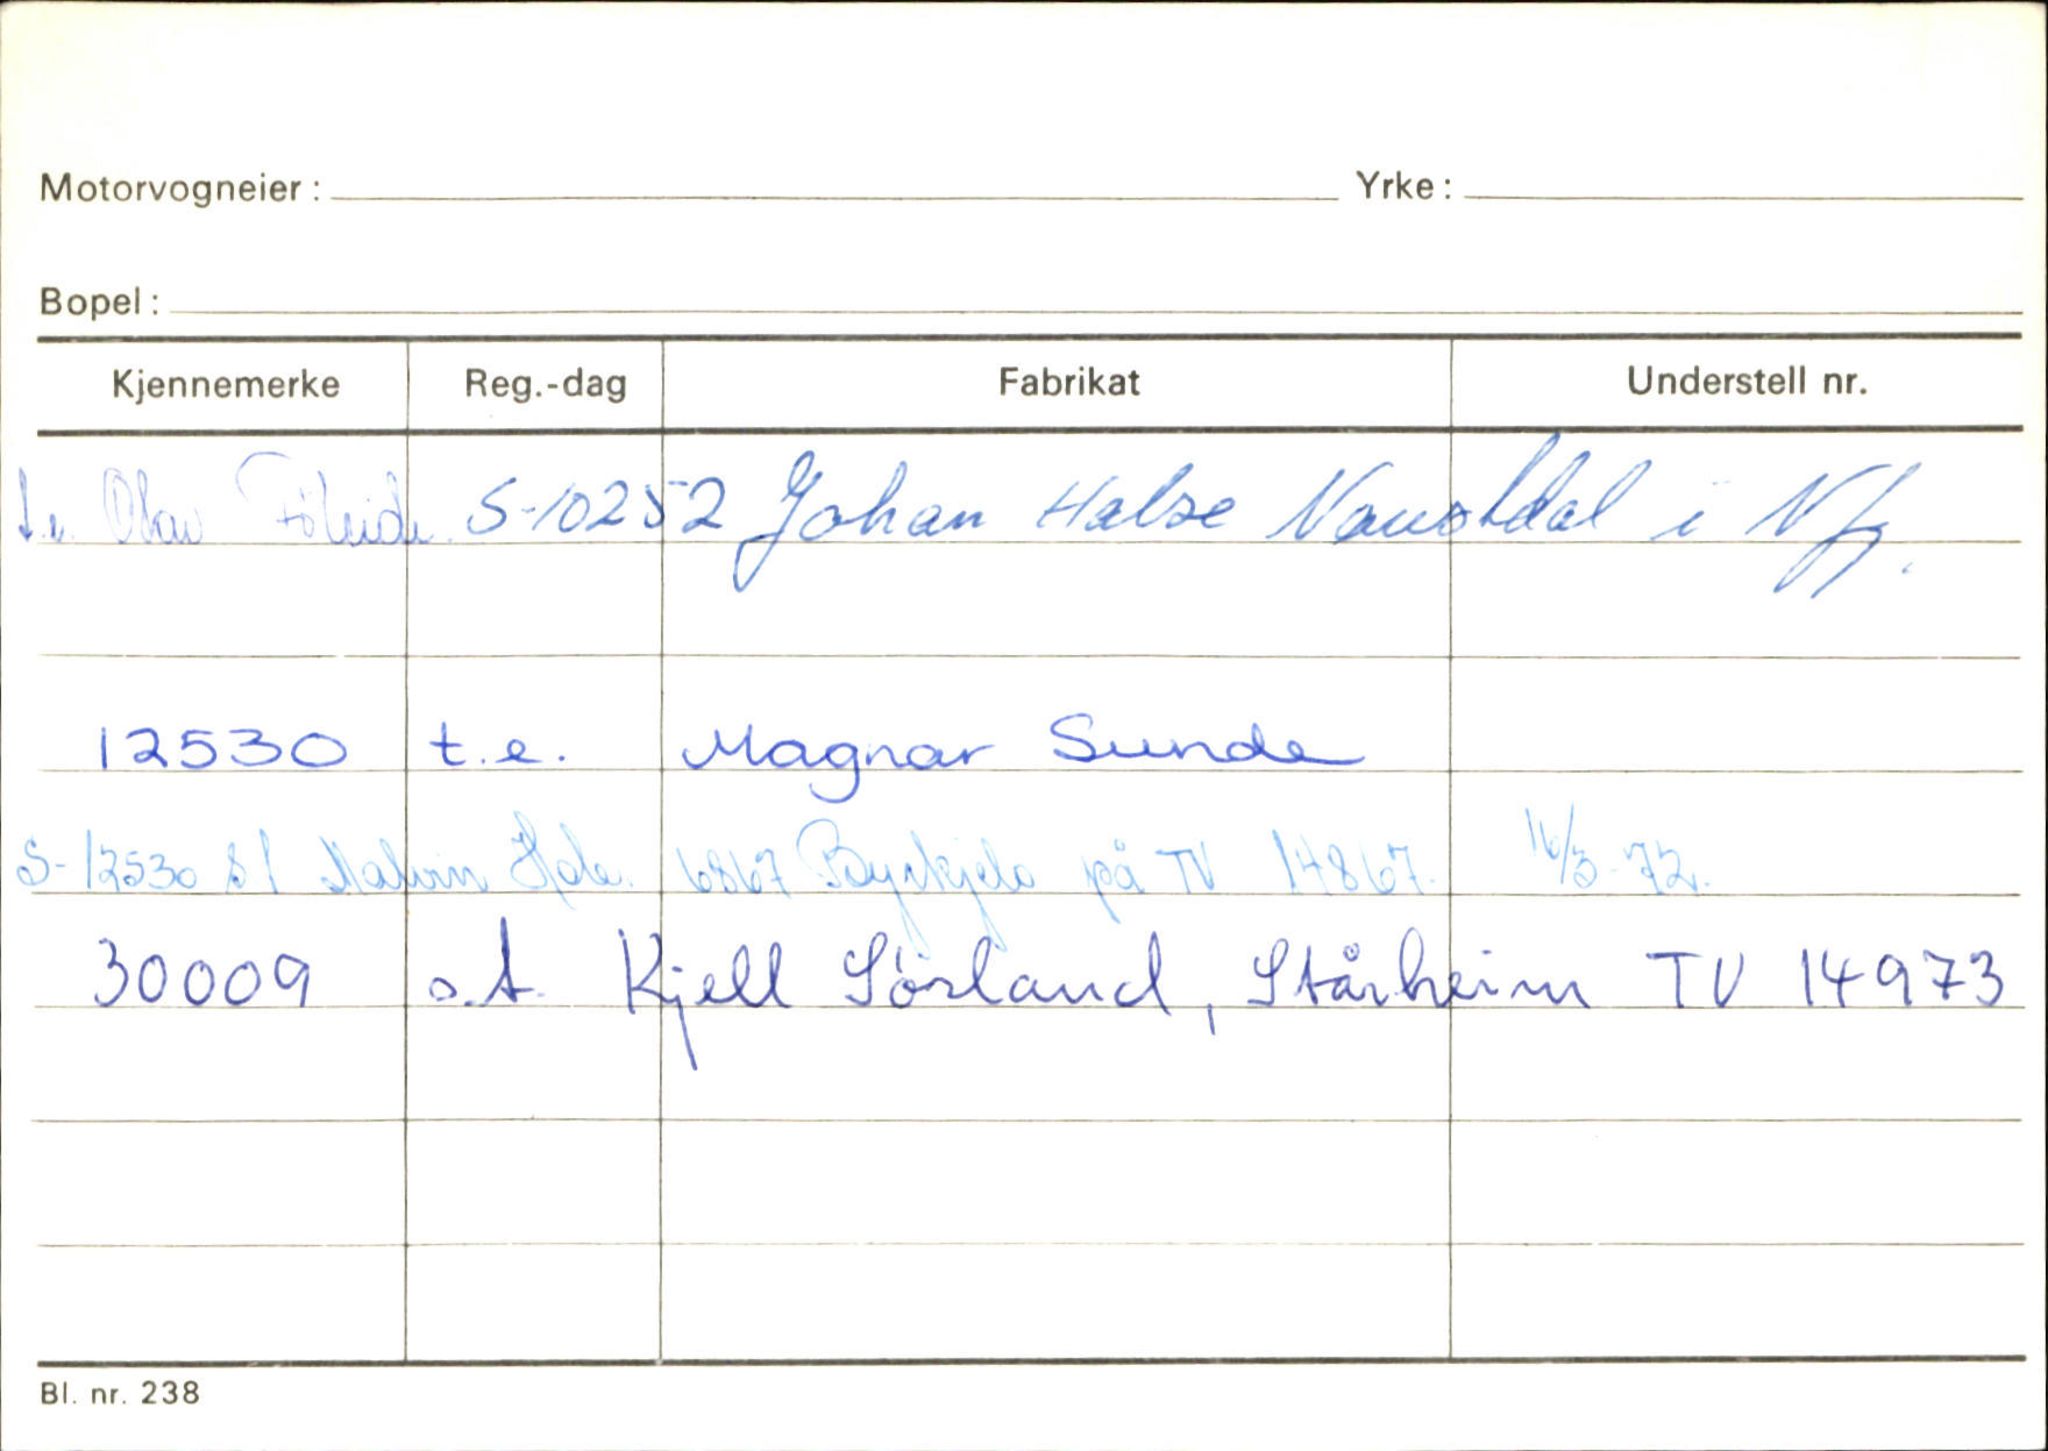 Motorvogneier: Yrke:
Bopel:
Kjennemerke Reg.-dag Fabrikat Understell nr.
t.e. Olav Föleide. S-10252 Johan Halse Naustdal i Nfj.
12530 t.e. Magnar Sunde
S-12530 s/ Malvin Hole. 6867 Byrkjelo på TV 14867. 16/3-72.
30009 o.t. Kjell Sørland, Stårheim TV 14973
Bl. nr. 238